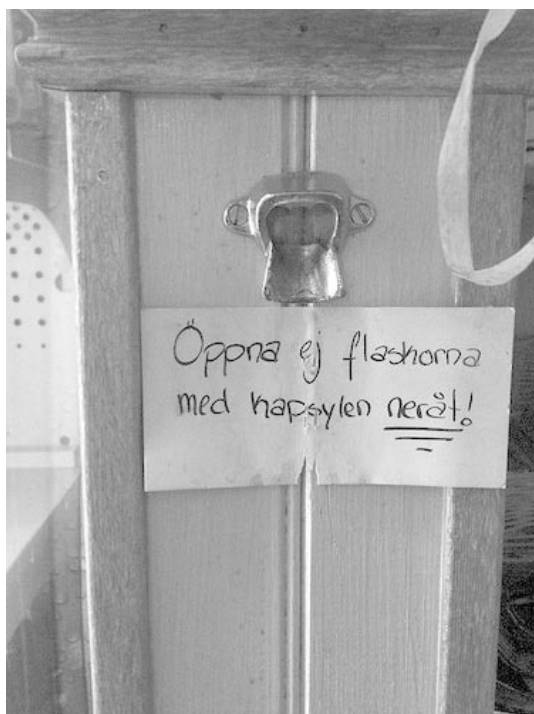 Öppna ej flaskorna
med kapsylen neråt!